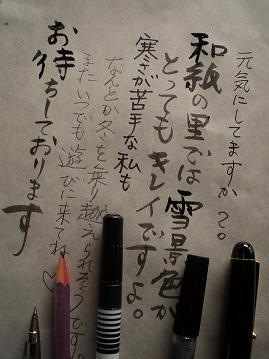 元気にしてますか?。
和紙の里では雪景色が
とってもキレイですよ。
寒さが苦手な私も
なんとか冬を乗り越えられそうです。
またいつでも遊びに来てね♡
お待ちしております